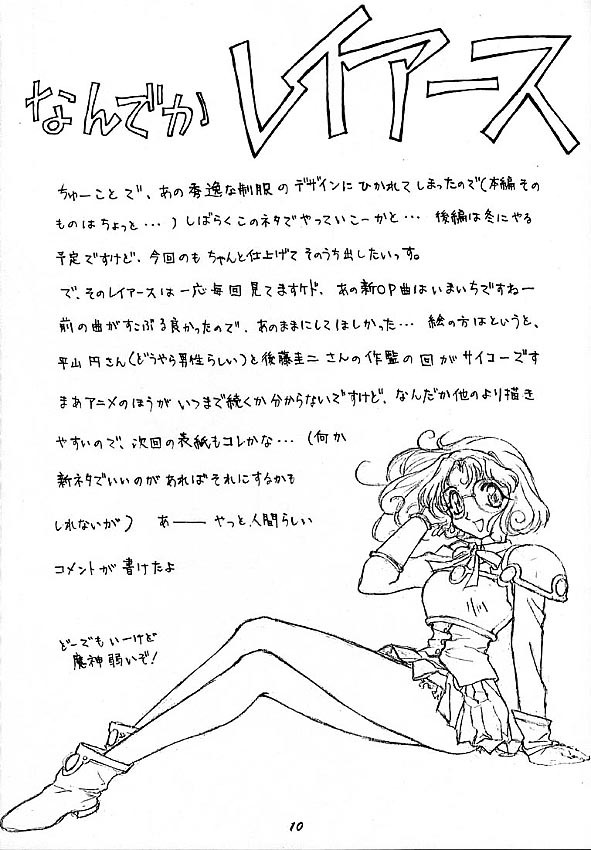 なんでか レイアース
ちゅーことで、あの秀逸な制服のデザインにひかれてしまったので(本編その
ものはちょっと・・・)しばらくこのネタでやっていこーかと・・・ 後編は冬にやる
予定ですけど、今回のもちゃんと仕上げてそのうち出したいっす。
で、そのレイアースは一応毎回見てますケド、あの新OP曲はいまいちですねー
前の曲がすこぶる良かったので、あのままにしてほしかった・・・ 絵の方はというと、
平山円さん(どうやら男性らしい)と後藤圭二さんの作監の回がサイコーです
まあアニメのほうがいつまで続くか分からないですけど、なんだか他のより描き
やすいので、次回の表紙もコレかな・・・(何か
新ネタでいいのがあればそれにするかも
しれないが) あ——やっと、人間らしい
コメントが書けたよ
どーでもいーけど
魔神弱いぞ!
10